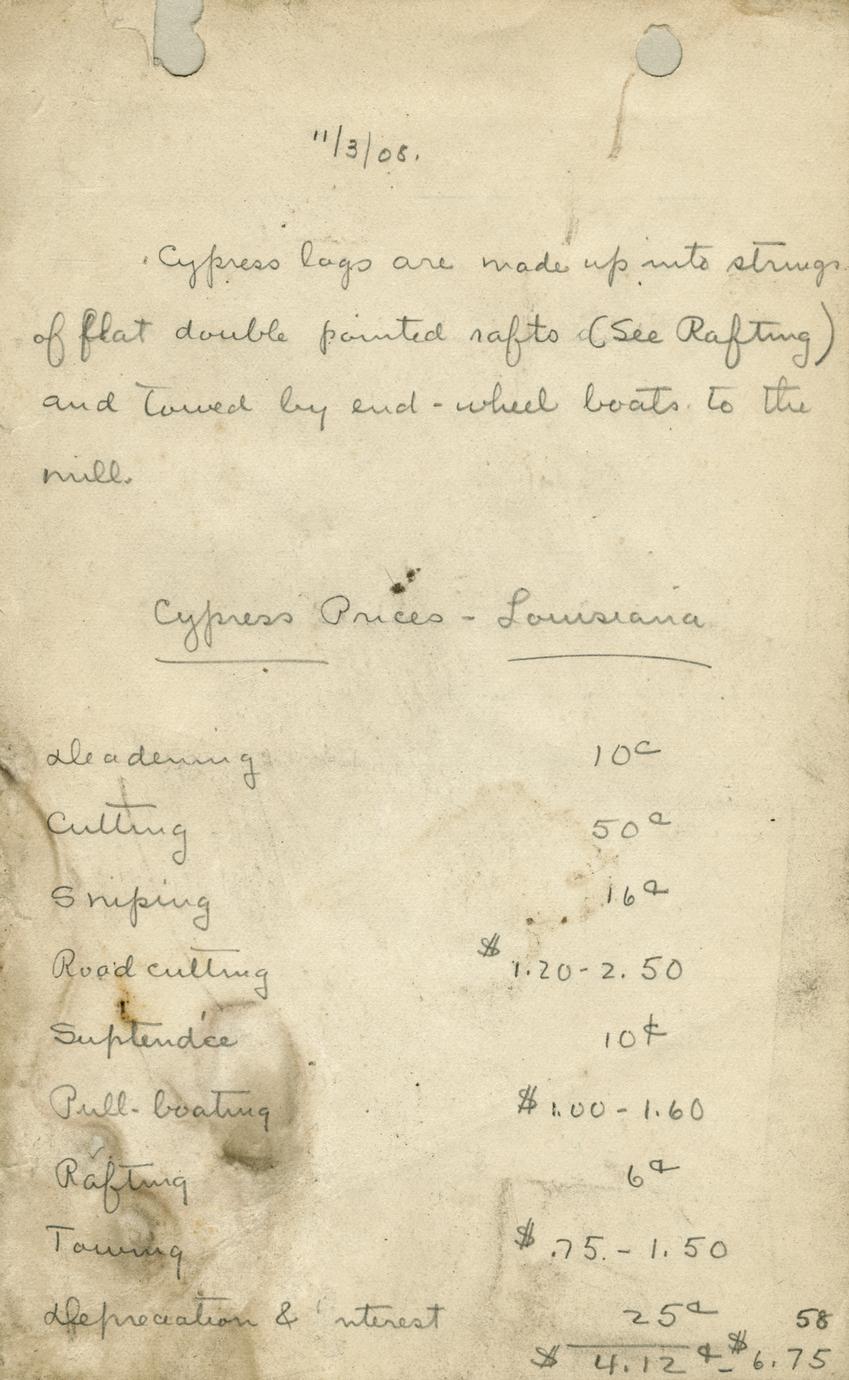 11/3/08.
Cypress logs are made up into strings
of flat double pointed rafts (See Rafting)
and towed by end-wheel boats to the
mill.
Cypress Prices - Louisiana
Deadening 10¢
Cutting 50¢
Sniping 16¢
Road cutting $1.20-2.50
Suptendce 10¢
Pull-boating $1.00-1.60
Rafting 6¢
Towing $.75-1.50
Depreciation & interest 25¢ 58
$4.12¢-$6.75